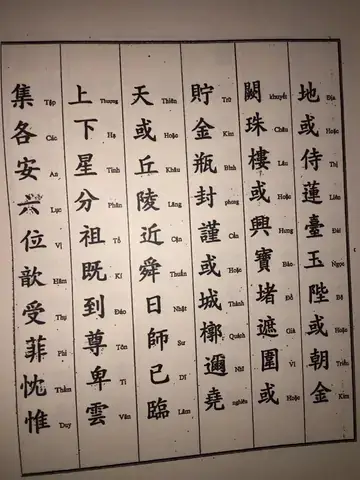 地 Địa 或 Hoặc 侍 Thị 蓮 Liên 臺 Đài 玉 Ngọc 陛 Bệ 或 Hoặc 朝 Triều 金 Kim
闕 khuyết 珠 Châu 樓 Lâu 或 Hoặc 興 Hưng 寶 Bảo 堵 Đổ 遮 Già 圍 Vi 或 Hoặc
貯 Trữ 金 Kim 瓶 Bình 封 phong 謹 Cẩn 或 Hoặc 城 Thành 槨 Quách 邇 Nhĩ 堯 nghiêu
天 Thiên 或 Hoặc 丘 Khâu 陵 Lăng 近 Cận 舜 Thuấn 日 Nhật 師 Sư 已 Dĩ 臨 Lâm
上 Thượng 下 Hạ 星 Tinh 分 Phân 祖 Tổ 既 Kí 到 Đáo 尊 Tôn 卑 Ti 雲 Vân
集 Tập 各 Các 安 An 六 Lục 位 Vị 歆 Hâm 受 Thụ 菲 Phỉ 忱 Thầm 惟 Duy